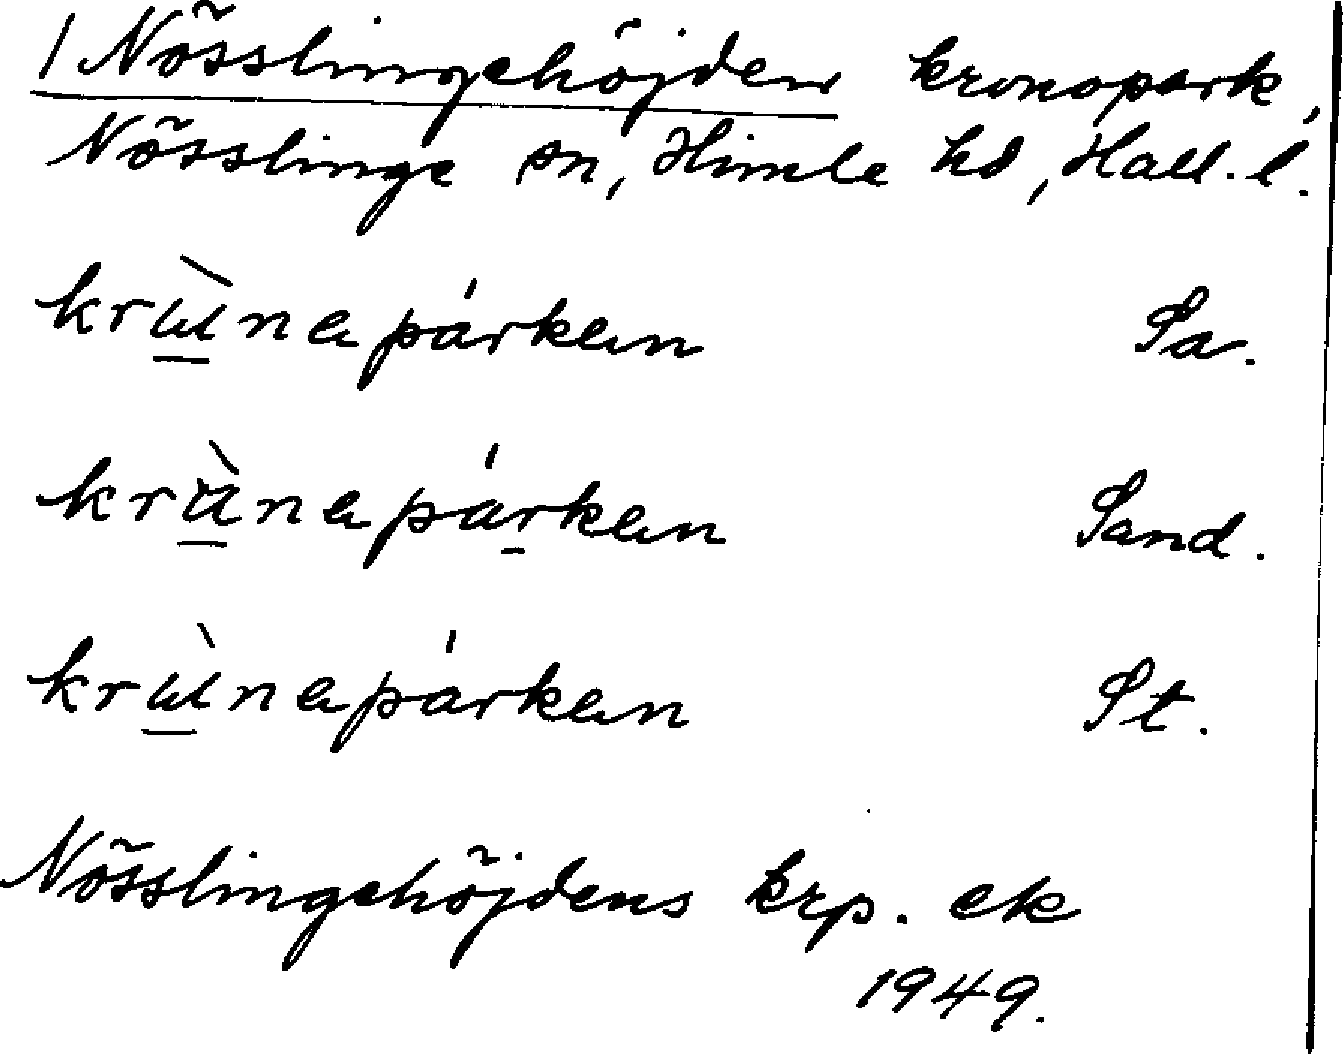 / Nösslingehöjden kronopark,
Nösslinge sn, Himle hd, Hall. l.
krùnapárkan Sa.
krùnapárkan Sand.
krùnapárkan St.
Nösslingehöjdens krp. ek
1949.